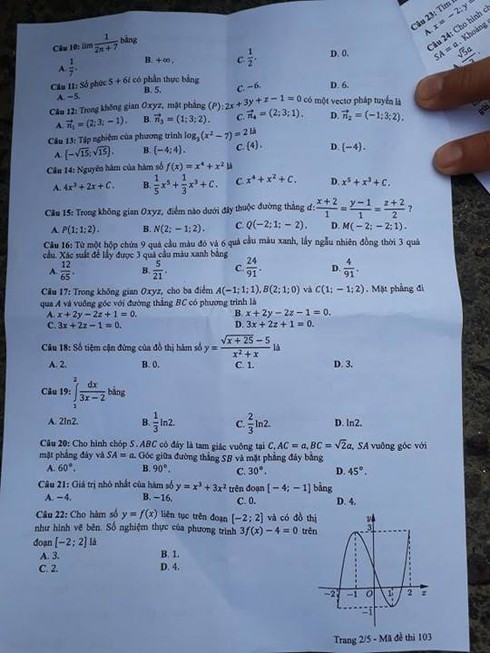 Câu 10: lim 1/(2n + 7) bằng
A. 1/7.
B. +∞.
C. 1/2.
D. 0.
Câu 11: Số phức 5 + 6i có phần thực bằng
A. −5.
B. 5.
C. −6.
D. 6.
Câu 12: Trong không gian Oxyz, mặt phẳng (P): 2x + 3y + z − 1 = 0 có một vectơ pháp tuyến là
A. n⃗₁ = (2; 3; −1).
B. n⃗₃ = (1; 3; 2).
C. n⃗₄ = (2; 3; 1).
D. n⃗₂ = (−1; 3; 2).
Câu 13: Tập nghiệm của phương trình log₃(x² − 7) = 2 là
A. {−√15; √15}.
B. {−4; 4}.
C. {4}.
D. {−4}.
Câu 14: Nguyên hàm của hàm số f(x) = x⁴ + x² là
A. 4x³ + 2x + C.
B. 1/5 x⁵ + 1/3 x³ + C.
C. x⁴ + x² + C.
D. x⁵ + x³ + C.
Câu 15: Trong không gian Oxyz, điểm nào dưới đây thuộc đường thẳng d: (x + 2)/1 = (y − 1)/1 = (z + 2)/2 ?
A. P(1; 1; 2).
B. N(2; −1; 2).
C. Q(−2; 1; −2).
D. M(−2; −2; 1).
Câu 16: Từ một hộp chứa 9 quả cầu màu đỏ và 6 quả cầu màu xanh, lấy ngẫu nhiên đồng thời 3 quả
cầu. Xác suất để lấy được 3 quả cầu màu xanh bằng
A. 12/65.
B. 5/21.
C. 24/91.
D. 4/91.
Câu 17: Trong không gian Oxyz, cho ba điểm A(−1; 1; 1), B(2; 1; 0) và C(1; −1; 2). Mặt phẳng đi
qua A và vuông góc với đường thẳng BC có phương trình là
A. x + 2y − 2z + 1 = 0.
B. x + 2y − 2z − 1 = 0.
C. 3x + 2z − 1 = 0.
D. 3x + 2z + 1 = 0.
Câu 18: Số tiệm cận đứng của đồ thị hàm số y = (√(x + 25) − 5)/(x² + x) là
A. 2.
B. 0.
C. 1.
D. 3.
Câu 19: ∫₁² dx/(3x − 2) bằng
A. 2ln2.
B. 1/3 ln2.
C. 2/3 ln2.
D. ln2.
Câu 20: Cho hình chóp S.ABC có đáy là tam giác vuông tại C, AC = a, BC = √2a, SA vuông góc với
mặt phẳng đáy và SA = a. Góc giữa đường thẳng SB và mặt phẳng đáy bằng
A. 60°.
B. 90°.
C. 30°.
D. 45°.
Câu 21: Giá trị nhỏ nhất của hàm số y = x³ + 3x² trên đoạn [−4; −1] bằng
A. −4.
B. −16.
C. 0.
D. 4.
Câu 22: Cho hàm số y = f(x) liên tục trên đoạn [−2; 2] và có đồ thị
như hình vẽ bên. Số nghiệm thực của phương trình 3f(x) − 4 = 0 trên
đoạn [−2; 2] là
A. 3.
B. 1.
C. 2.
D. 4.
y
3
−2 −1 O 1 2 x
−1
Trang 2/5 - Mã đề thi 103
Câu 23: Tìm
A. x = −2; y
Câu 24: Cho hình
SA = a. Khoảng